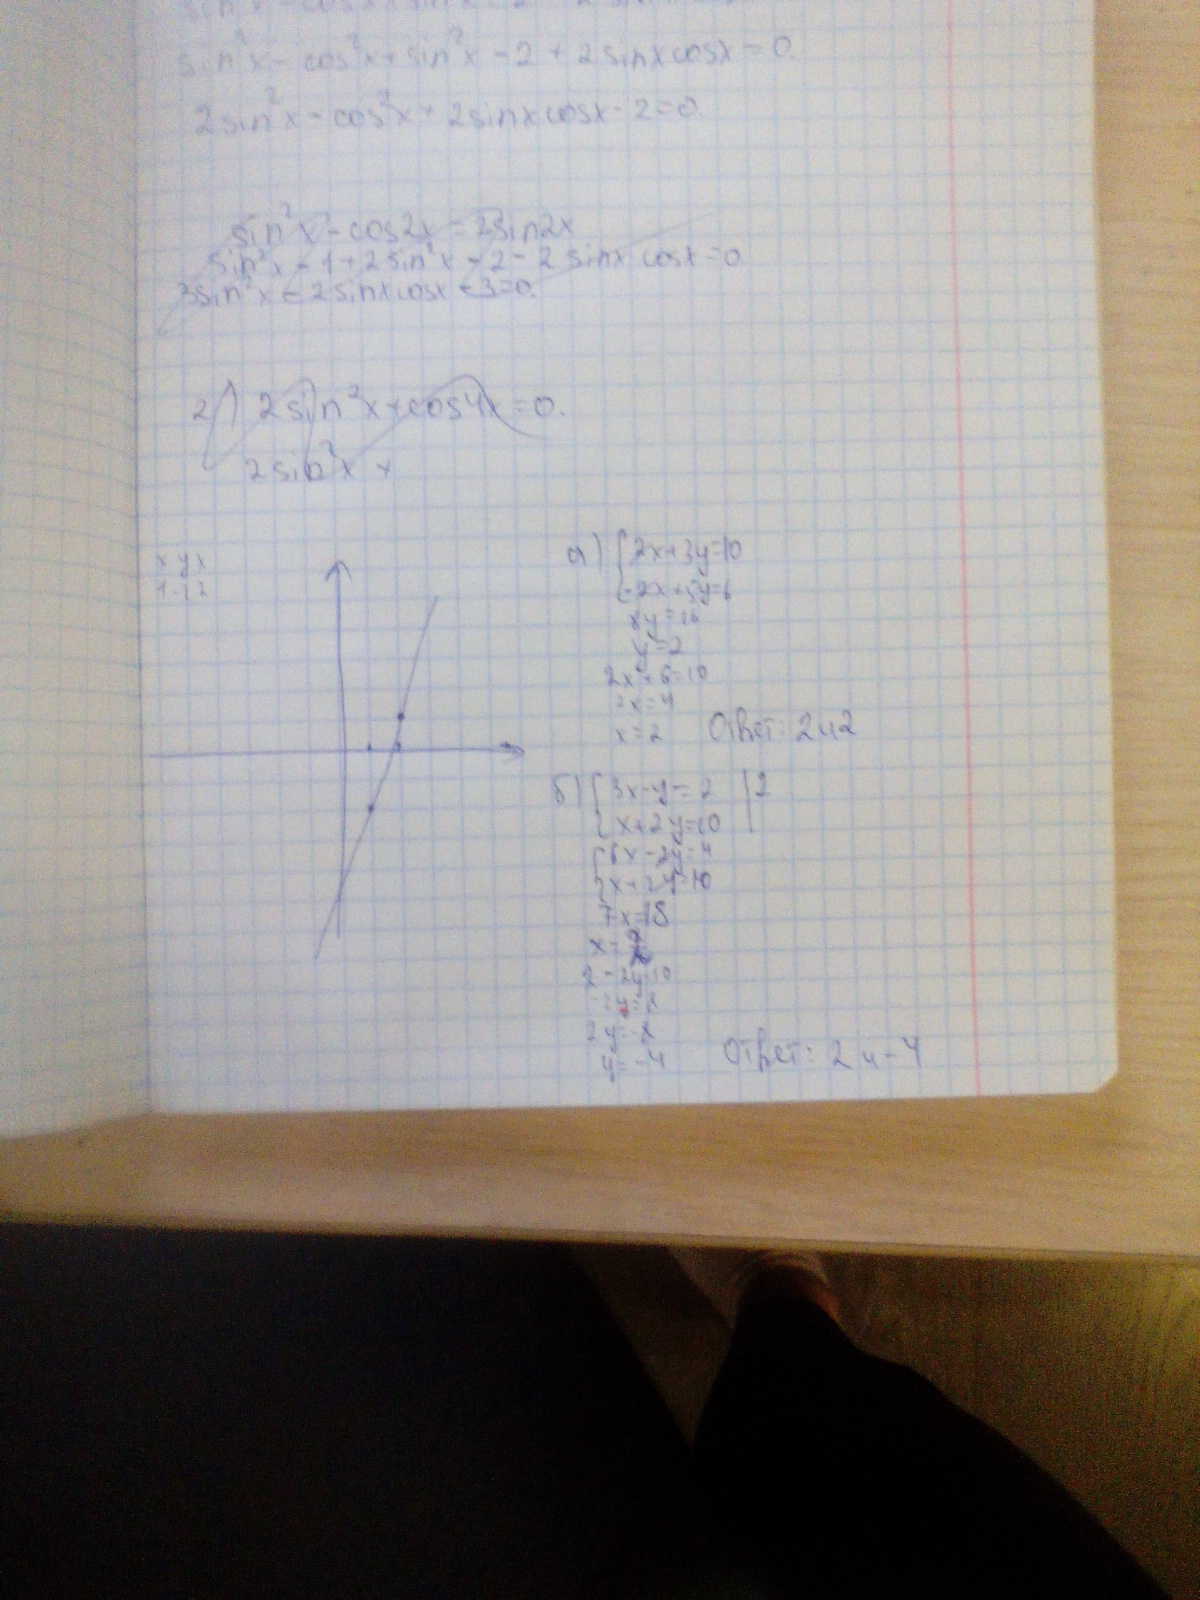 sin²x - cos²x + sin²x - 2 + 2sinxcosx = 0.
2sin²x - cos²x + 2sinxcosx - 2 = 0.
sin²x - cos2x = 2sin2x
sin²x - 1 + 2sin²x - 2 - 2sinx cosx = 0
3sin²x - 2sinxcosx - 3 = 0.
2) 2sin²x + cos4x = 0.
2sin²x x
x y x
а) { 2x+3y=10
-2x+5y=6
8y=16
y=2
2x+6=10
2x=4
x=2 Ответ: 2и2
б) { 3x-y=2 | 2
x+2y=10
{ 6x-2y=4
x+2y=10
7x=18
x=
2-2y=10
-2y=8
2y=-8
y=-4 Ответ: 2 и -4